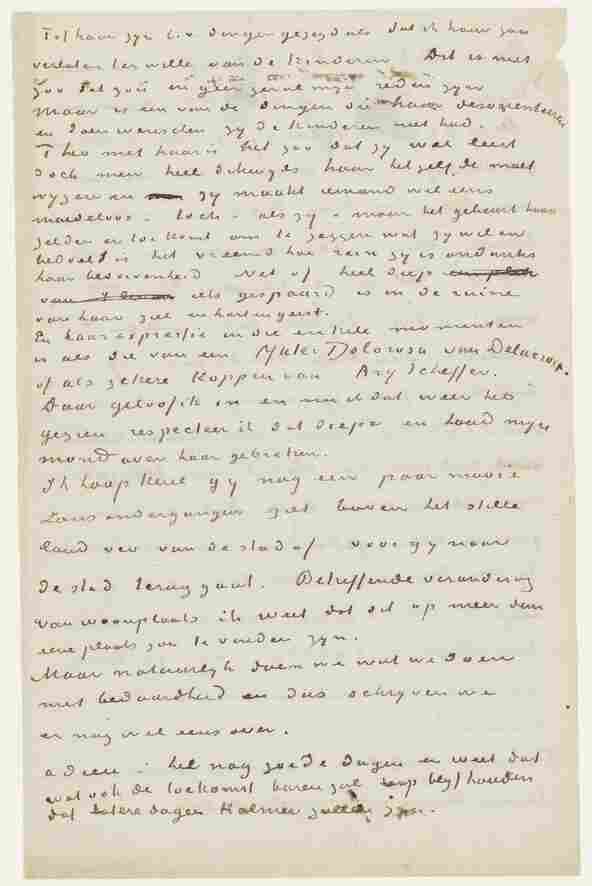 Tot haar zijn b.v. dingen gezegd als dat ik haar zou
verlaten ter wille van de kinderen. Dit is niet
zoo
Maar is een van de dingen die haar desorienteeren
en zoen wezen zij de kinderen niet had.
Theo met haar is het zoo dat zij wel leert
doch men heel dikwijls haar hetzelfde moet
wijzen en zij maakt iemand wel eens
moedeloos. toch – als zij – maar het gebeurt haar
zelden er toe komt om te zeggen wat zij wil en
bedoelt is het vreemd hoe rein zij is ondanks
haar bedorvenheid Net of heel diep
van iets gespaard is in de ruine
van haar ziel en hart en geest.
En haar expressie in die enkele momenten
is als die van een Mater Dolorosa van Delacroix.
of als zekere koppen van Ary Scheffer.
Daar geloof ik in en nu ik dat weer heb
gezien respecteer ik dat diepe en houd mijn
mond over haar gebreken.
Ik hoop Kerel gij nog een paar mooie
zonsondergangen ziet boven het stille
land ver van de stad of voor gij naar
de stad terug gaat. Betreffende verandering
van woonplaats ik weet dat dit op meer dan
eene plaats zou te vinden zijn.
Maar natuurlijk doen we wat we doen
met bedaardheid en dus schrijven we
er nog wel eens over.
adieu – heb nog goede dagen en weet dat
wat ook de toekomst baren zal hoop blijf houden
dat latere dagen kalmer zullen zijn.